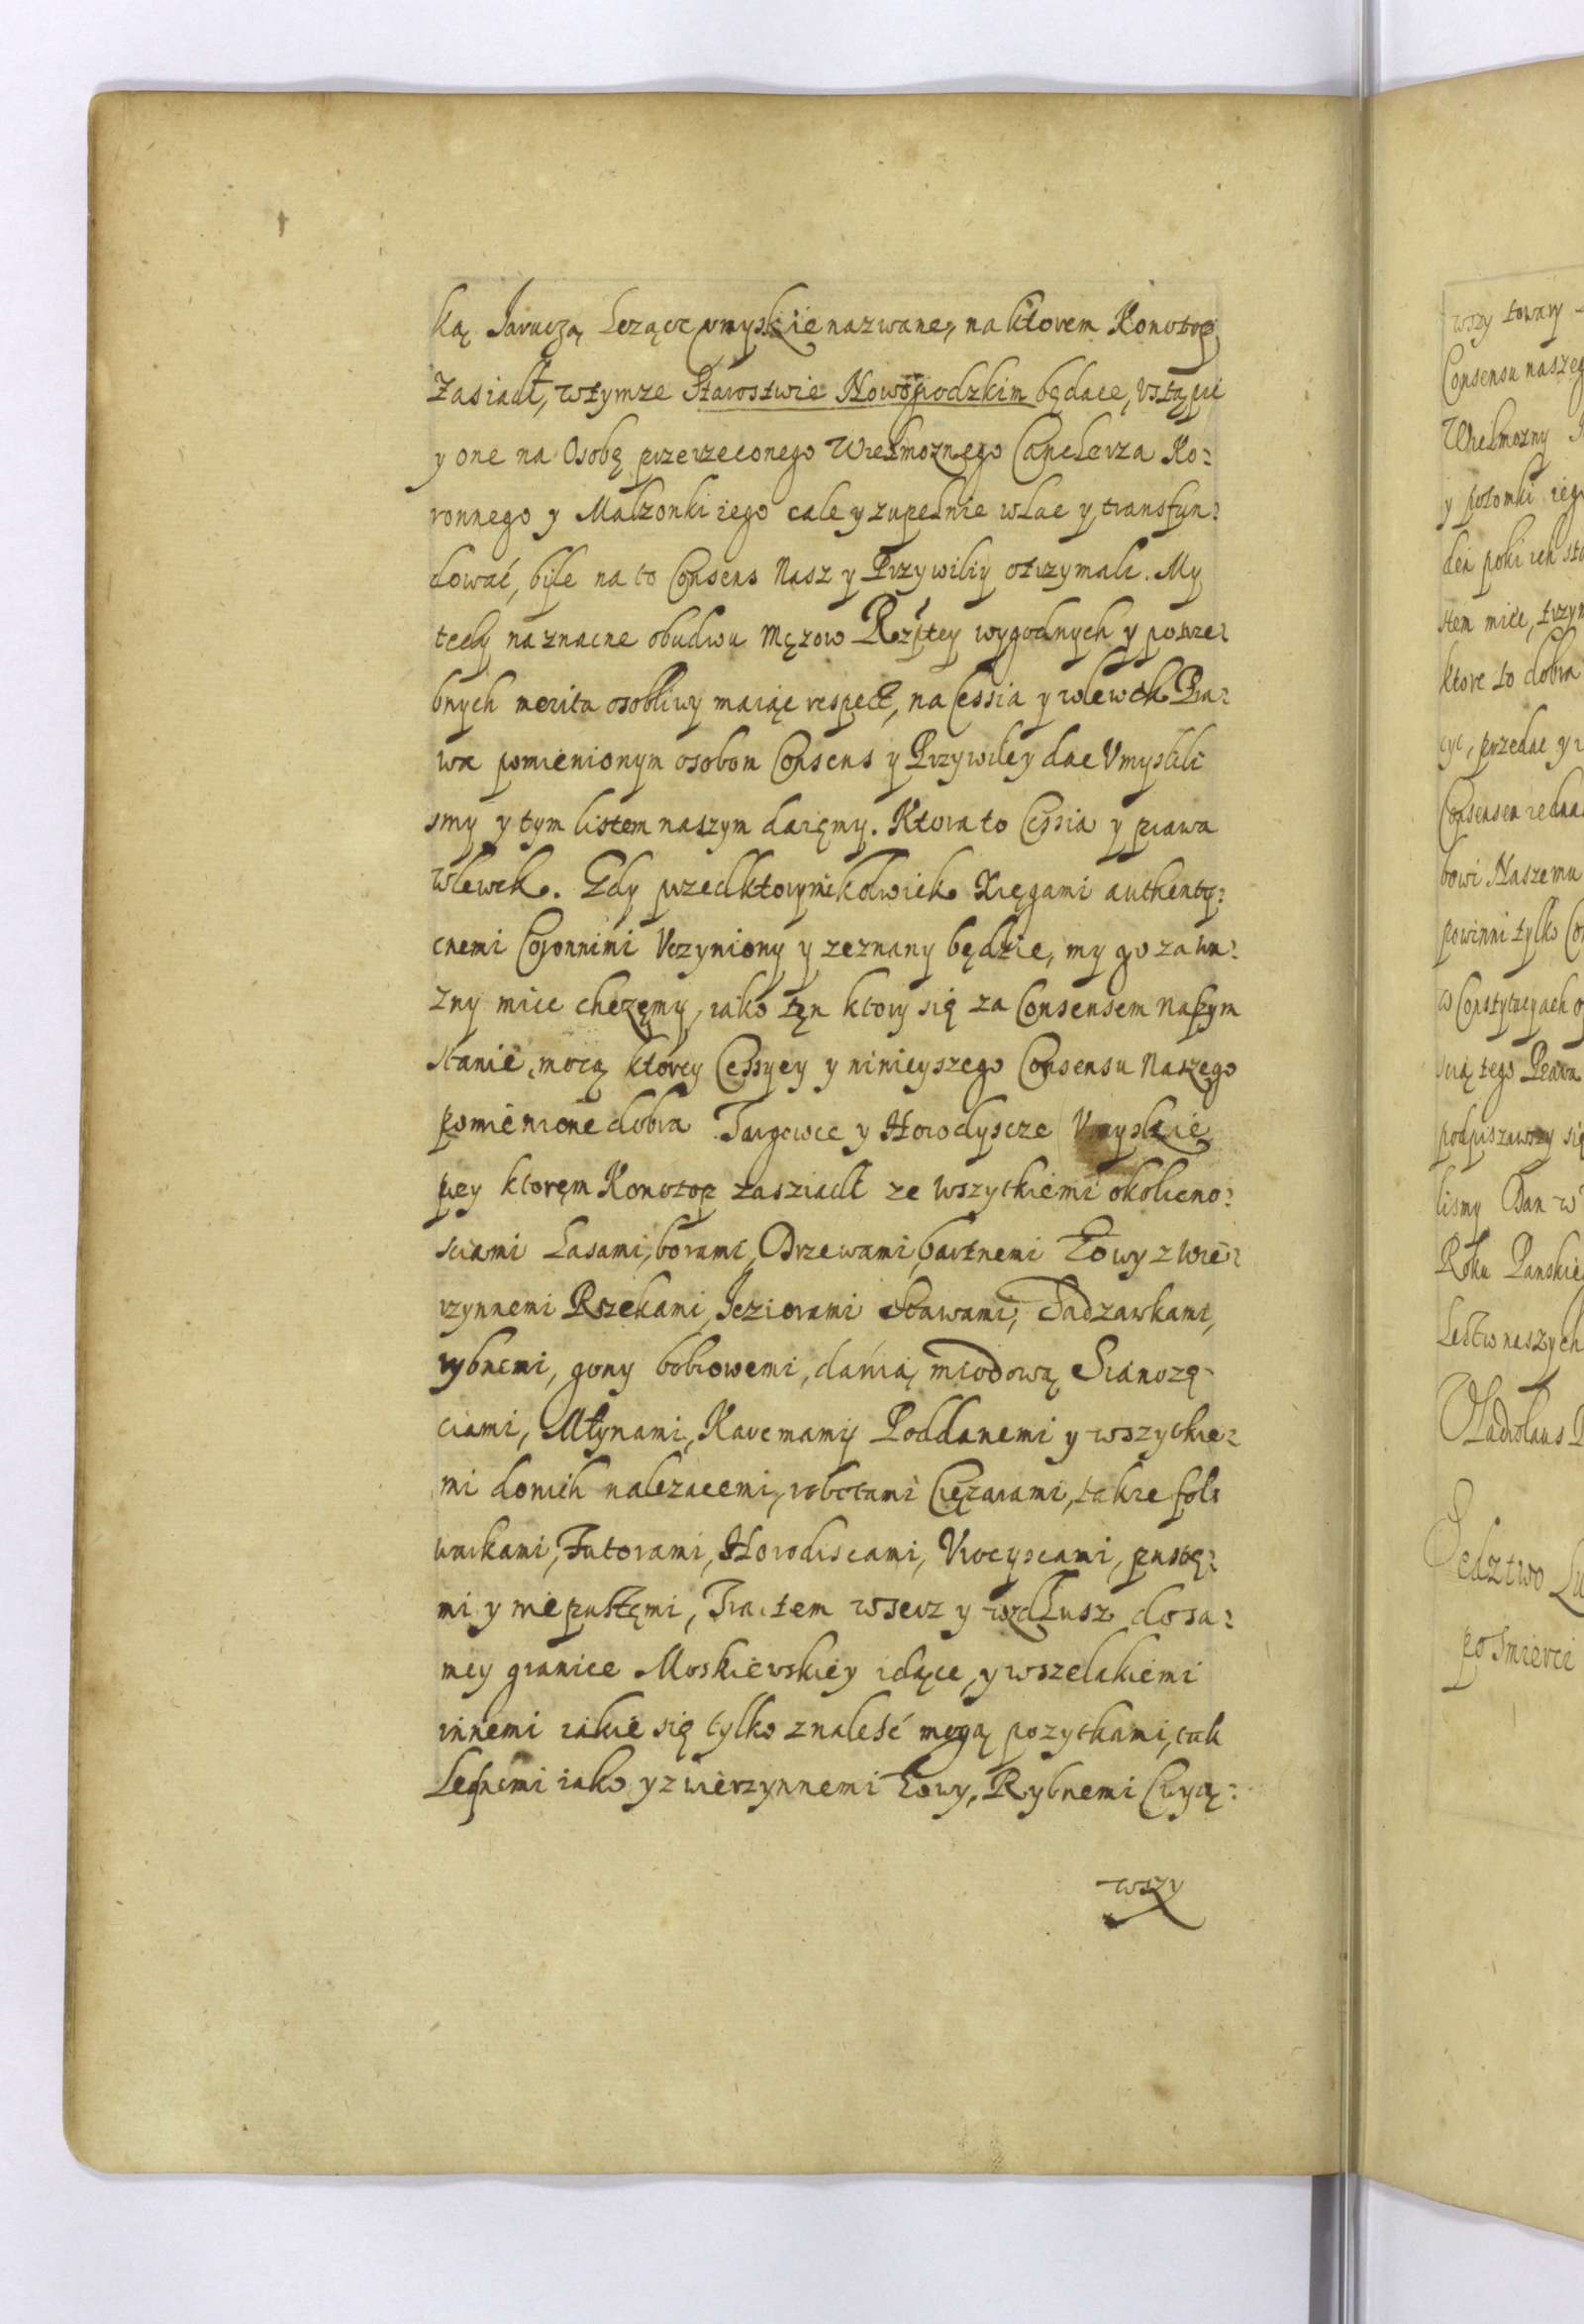 ką Jaruczą Lezące vmyskie nazwane, na ktorem Konotop
zasiadł, wtymze Starostwie Nowogrodzkim będace, Vstąpic
y one na Osobę przerzeconego Wielmoznego Canclerza Ko:
ronnego y Malzonki iego cale y zupełnie wlac y transfun:
dować, byle na to Consens Nasz y Przywiliy otrzymali. My
tedy na znacne obudwu Męzow Rzptey wygodnych y potrze:
bnych merita osobliwy maiąc respect, na Cessia y wlewek Pra:
wa pomienionym osobom Consens y Przywiley dac Vmyslili
smy y tym listem naszym daięmy. Ktora to Cessia y prawa
wlewek. Gdy przed ktorymikolwiek Xięgami authenty:
cnemi Coronnimi Vczyniony y zeznany będzie, my go za wa:
zny miec chczęmy, iako tęn ktory się za Consensem naszym
stanie, mocą ktorey Cessyey y ninieyszego Consensu Naszego
pomienione dobra Targowce y Horodyscze Vmyskie
prey ktoręm Konotop zasziadł ze wszytkiemi okolicno:
sciami Lasami, borami, Drzewami bartnemi Łowy zwie:
rzynnemi Rzekami, Jeziorami Stawami, Sadzawkami,
rybnemi, gony bobrowemi, danią miodową Sianozę-
ciami, Młynami, Karcmamy Poddanemi y wszytkie:
mi donich nalezacemi, robotami Cięzarami, takze fol:
warkami, Futorami, Horodiscami, Vrocyscami, pustę:
mi y niepustęmi, Tractem wserz y wzdłusz do sa:
mey granice Moskiewskiey idące, y wszelakiemi
innemi iakie się tylko znaleść mogą pozytkami, tak
Leśnemi iako y zwierzynnemi Łowy, Rybnemi
wszy
wszy towary
Consensu naszeg
Wielmozny
y potomki ieg
dęn poki ich sta
stem miec, trzym
ktore to dobra
cyc, przedac y
Consensem iedna
bowi Naszemu
powinni tylko
w Constytucyach
scią tego Prawa
podpisawszy się
lismy Dan w
Roku Panskie
Lestw naszych
Vladislaus
Sedztwo Lu
po Smierci